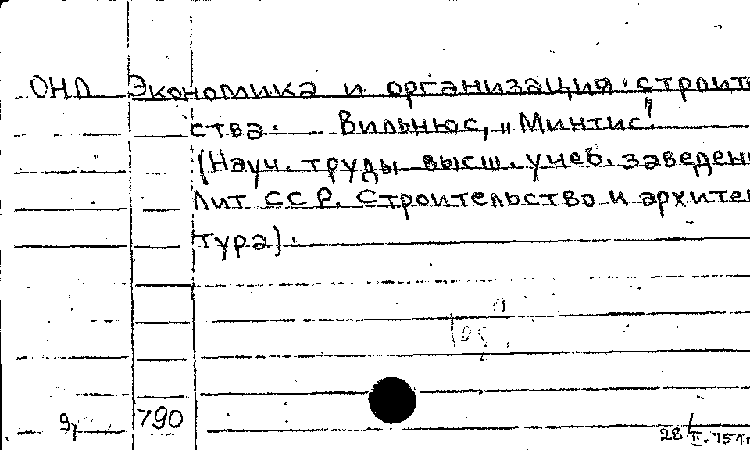 ОНЛ Экономика и организация строит
ства. Вильнюс, „Минтис".
(Науч. труды высш. учеб. заведен
Лит ССР. Строительство и архитек
тура).
9, 790